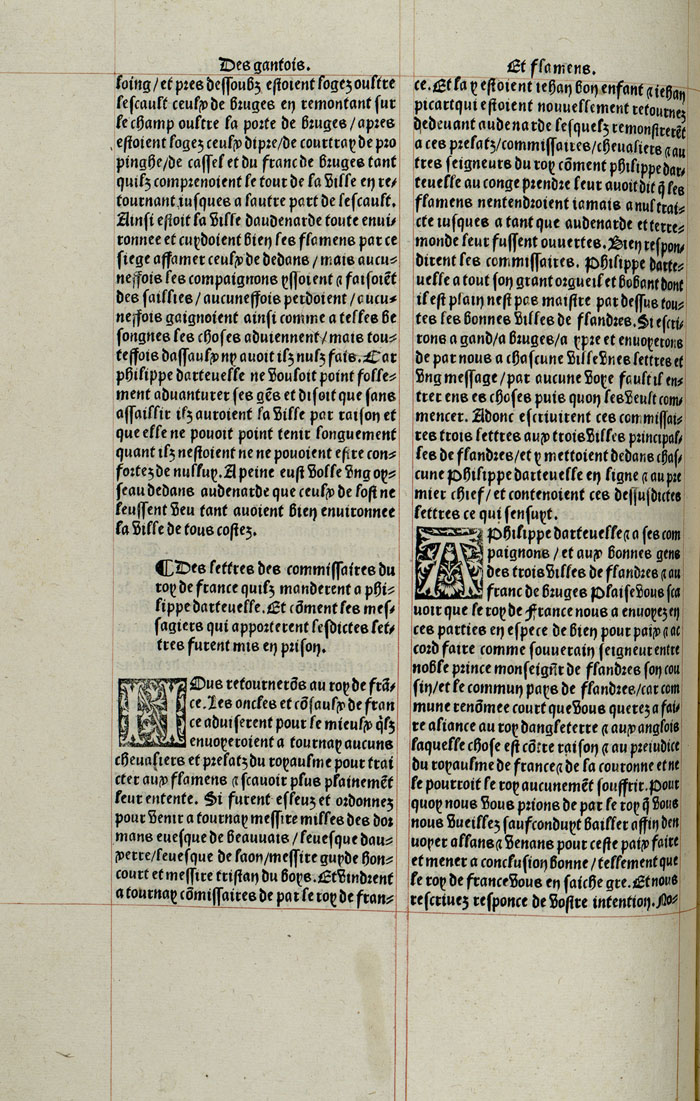 Des gantois.
loing/et pres dessoubz estoient logez oultre
lescault ceulx de bruges en remontant sur
le champ oultre la porte de bruges/apres
estoient logez ceulx dipre/de courtray de pro
pinghe/de cassel et du franc de bruges tant
quilz comprenoient le tour de la ville en re-
tournant iusques a lautre part de lescault.
Ainsi estoit la ville daudenarde toute enui-
ronnee et cuydoient bien les flamens par ce
siege affamer ceulx de dedans/mais aucu-
neffois les compaignons yssoient ⁊ faisoiẽt
des saillies/aucuneffois perdoient/aucu-
neffois gaignoient ainsi comme a telles be
songnes les choses aduiennent/mais tou-
teffois dassaulx ny auoit ilz nulz fais. Car
philippe darteuelle ne vouloit point folle-
ment aduanturer ses gẽs et disoit que sans
assaillir ilz auroient la ville par raison et
que elle ne pouoit point tenir longuement
quant ilz nestoient ne ne pouoient estre con-
fortez de nulluy. A peine eust volle vng oy-
seau dedans audenarde que ceulx de lost ne
leussent veu tant auoient bien enuironnee
la ville de tous costez.
¶Des lettres des commissaires du
roy de france quilz manderent a phi-
lippe darteuelle. Et cõment les mes-
sagiers qui apporterent lesdictes let-
tres furent mis en prison.
Nous retournerõs au roy de frã-
ce. Les oncles et cõsaulx de fran
ce aduiserent pour le mieulx q̃lz
enuoyeroient a tournay aucuns
cheualiers et prelatz du royaulme pour trai
cter aux flamens ⁊ scauoir plus plainemẽt
leur entente. Si furent esleuz et ordonnez
pour venir a tournay messire milles des dor
mans euesque de beauuais/leuesque dau-
xerre/leuesque de laon/messire guy de hon-
court et messire tristan du boys. Et vindrent
a tournay cõmissaires de par le roy de fran-
Et flamens.
ce. Et la y estoient iehan bon enfant ⁊ iehan
picart qui estoient nouuellement retournez
dedeuant audenarde lesquelz remonstrerẽt
a ces prelatz/commissaires/cheualiers ⁊ au
tres seigneurs du roy cõment philippe dar-
teuelle au conge prendre leur auoit dit q̃ les
flamens nentendroient iamais a nul trai-
cte iusques a tant que audenarde et terre-
monde leur fussent ouuertes. Bien respon-
dirent les commissaires. Philippe darte-
uelle a tout son grant orgueil et bobant dont
il est plain nest pas maistre par dessus tou-
tes les bonnes villes de flandres. Si escri-
rons a gand/a bruges/a ypre et enuoyerons
de par nous a chascune ville vnes lettres et
vng message/par aucune voye fault il en-
trer en es choses puis quon les veult com-
mencer. Adonc escriuirent ces commissai-
res trois lettres aux trois villes principal-
les de flandres/et y mettoient dedans chas-
cune Philippe darteuelle en ligne ⁊ au pre
mier chief/et contenoient ces dessusdictes
lettres ce qui sensuyt.
A Philippe darteuelle ⁊ a ses com
paignons/et aux bonnes gens
des trois villes de flandres ⁊ au
franc de bruges Plaise vous sca
uoir que le roy de france nous a enuoyez en
ces parties en espece de bien pour paix ⁊ ac
cord faire comme souuerain seigneur entre
noble prince monseign̄r de flandres son cou
sin/et le commun pays de flandres/car com
mune renõmee court que vous querez a fai-
re aliance au roy dangleterre ⁊ aux anglois
laquelle chose est cõtre raison ⁊ au preiudice
du royaulme de france ⁊ de la couronne et ne
le pourroit le roy aucunemẽt souffrir. Pour
quoy nous vous prions de par le roy q̃ vous
nous vueillez saufconduyt bailler affin den
uoyer allans ⁊ venans pour ceste paix faire
et mener a conclusion bonne/tellement que
le roy de france vous en saiche gre. Et nous
rescriuez responce de vostre intention. No-